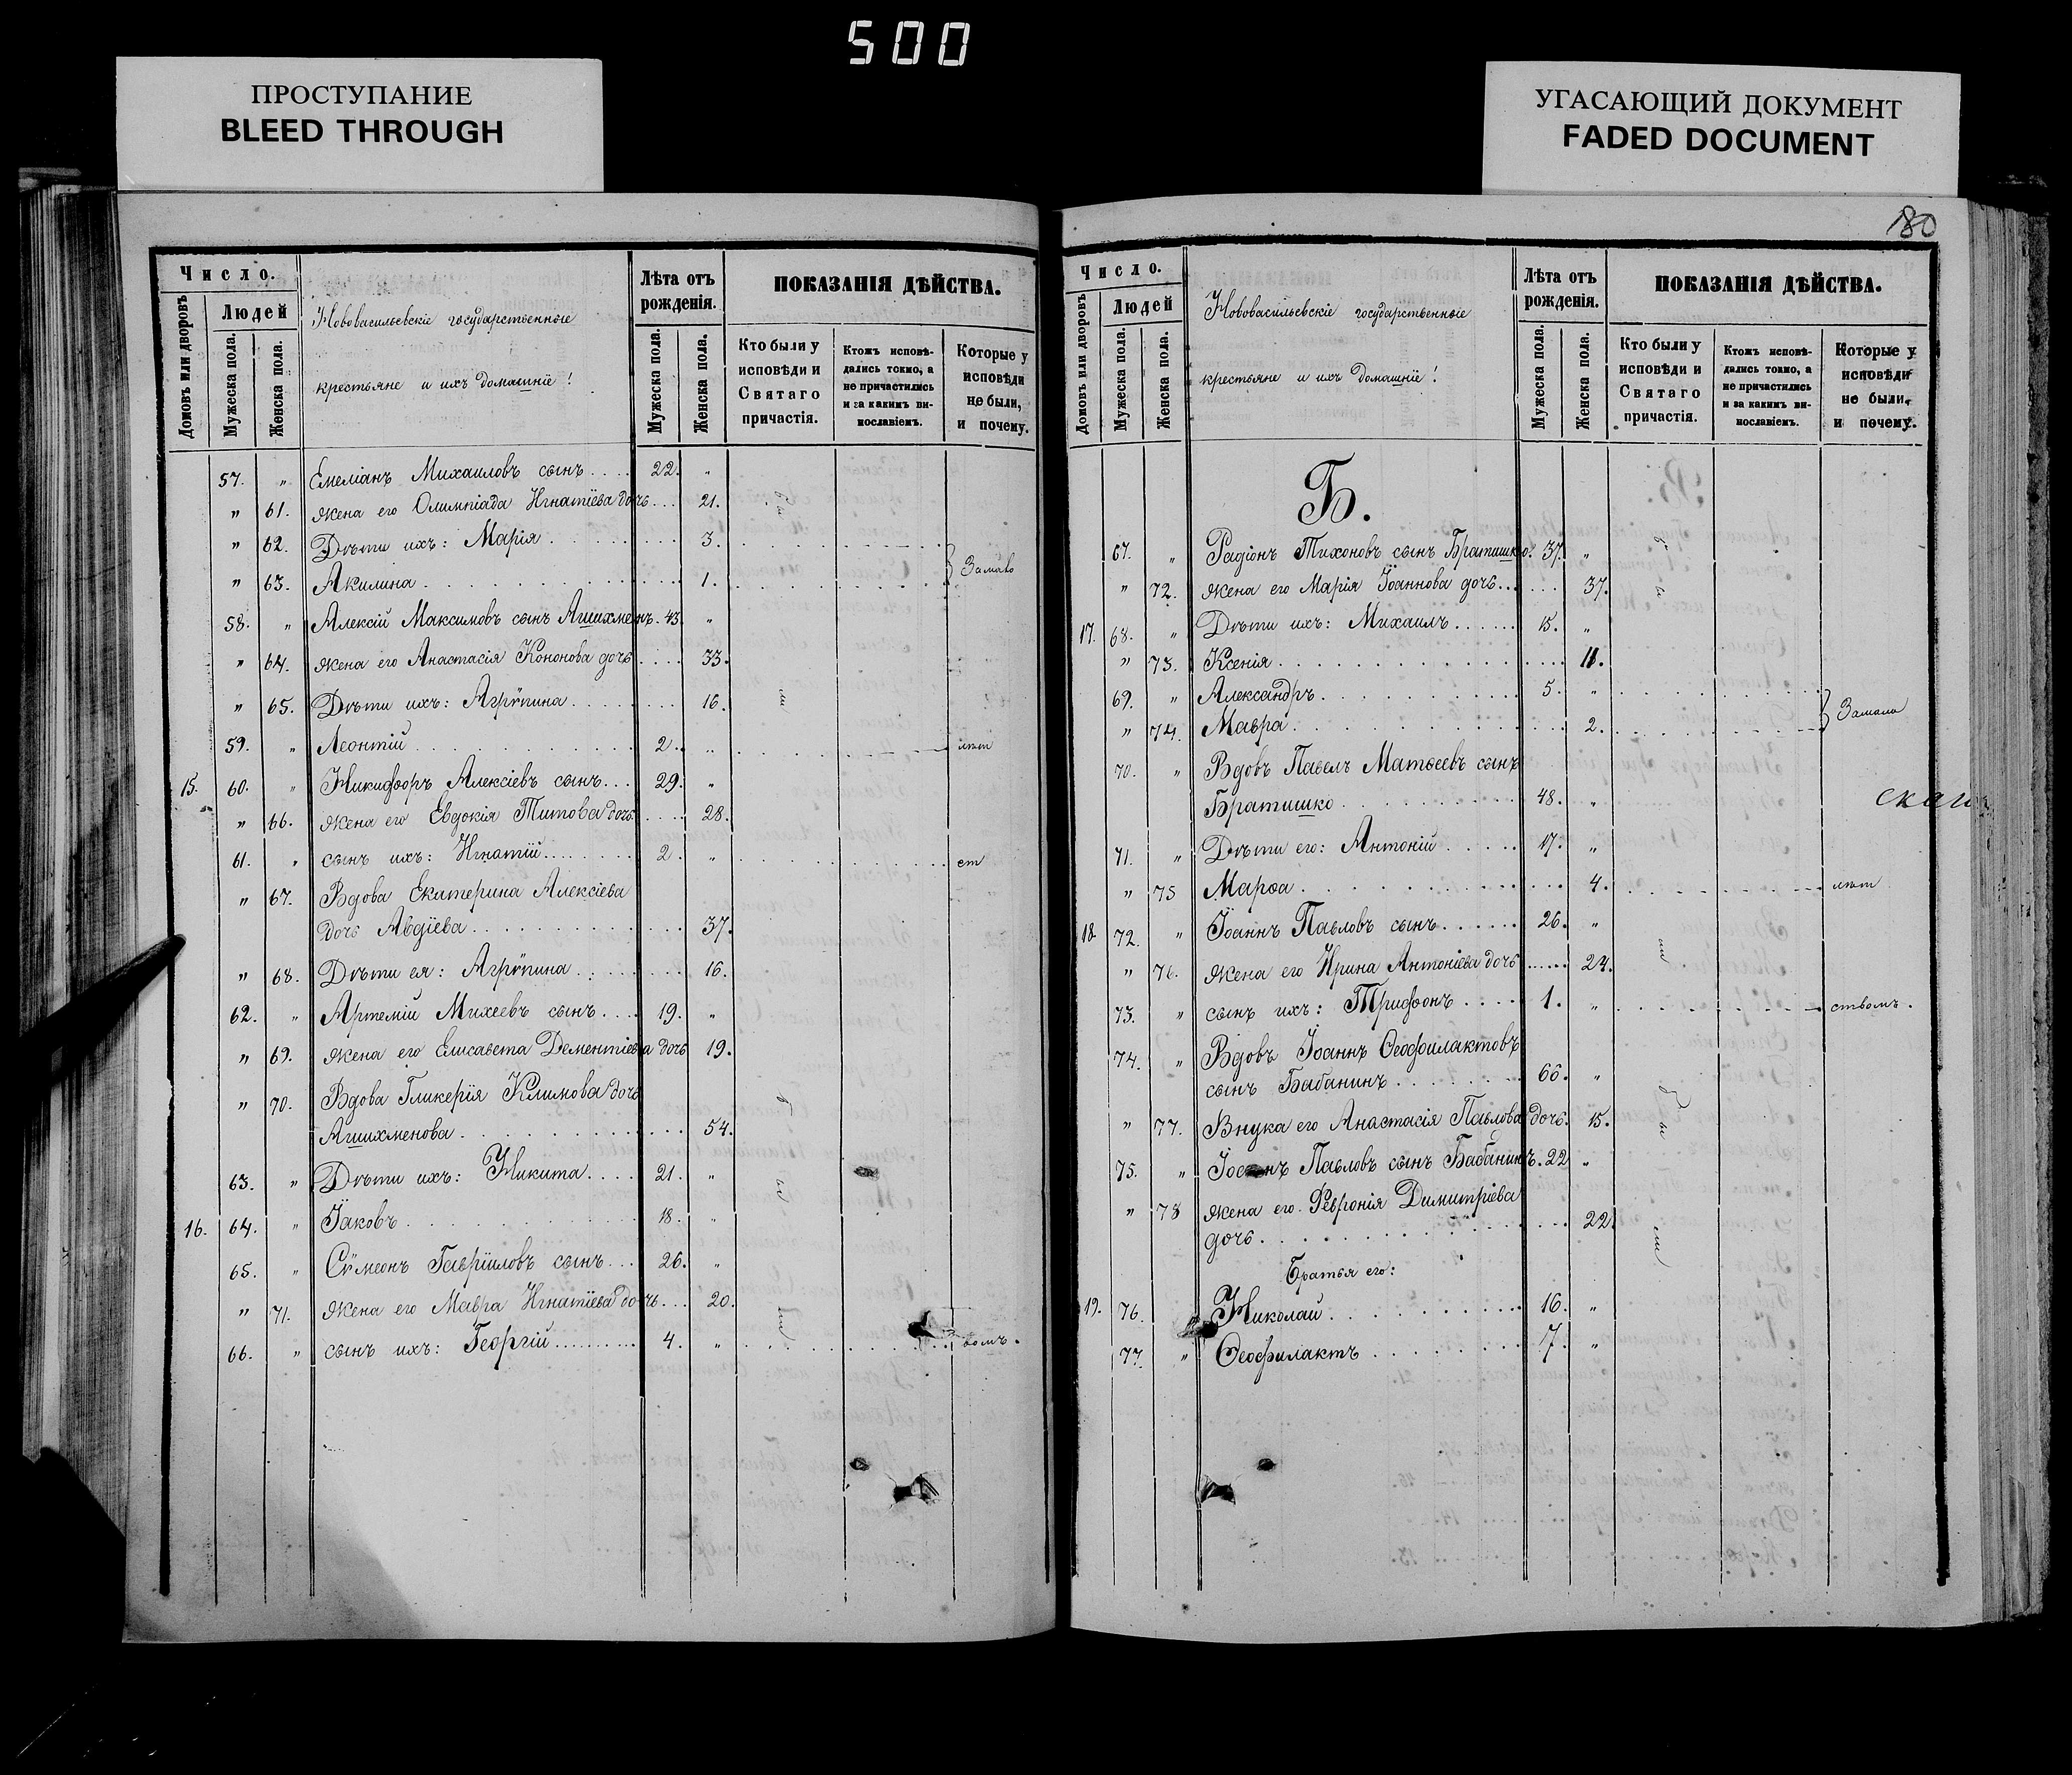 500
ПРОСТУПАНИЕ
BLEED THROUGH
УГАСАЮЩИЙ ДОКУМЕНТ
FADED DOCUMENT
Число.
Домовъ или дворовъ
Людей
Мужеска пола.
Женска пола.
Нововасильевскіе государственные
крестьяне и ихъ домашніе!
Лѣта отъ рожденія.
Мужеска пола.
Женска пола.
ПОКАЗАНІЯ ДѢЙСТВА.
Кто были у исповѣди и Святаго причастія.
Ктожъ исповѣдались токмо, а не причастились и за какимъ винословіемъ.
Которые у исповѣди не были, и почему.
57. " Емеліанъ Михаиловъ сынъ.... 22. "
" 61. жена его Олимпіада Игнатіева дочь... 21.
" 62. Дѣти ихъ: Марія........ 3.
" 63. Акилина........ 1. Замало
58. " Алексій Максимовъ сынъ Агишхменъ. 43. "
" 64. жена его Анастасія Кононова дочь.... 33.
" 65. Дѣти ихъ: Агрѵпина........ 16.
59. " Леонтій........ 2. " лѣт
15. 60. " Никифоръ Алексіевъ сынъ... 29. "
" 66. жена его Евдокія Титова дочь.... 28.
61. " сынъ ихъ: Игнатій........ 2. " ст
" 67. Вдова Екатерина Алексіева
дочь Авдіева........ 37.
" 68. Дѣти ея: Агрѵпина........ 16.
62. " Артемій Михеевъ сынъ.... 19. "
" 69. жена его Елисавета Дементіева дочь 19.
" 70. Вдова Гликерія Климова дочь
Агишхменова........ 54.
63. " Дѣти ихъ: Никита.... 21. "
16. 64. " Іаковъ........ 18. "
65. " Сѵмеонъ Гавріиловъ сынъ... 26. "
" 71. жена его Мавра Игнатіева дочь... 20.
66. " сынъ ихъ: Георгій........ 4. " вомъ.
180
Число.
Домовъ или дворовъ
Людей
Мужеска пола.
Женска пола.
Нововасильевскіе государственные
крестьяне и ихъ домашніе!
Лѣта отъ рожденія.
Мужеска пола.
Женска пола.
ПОКАЗАНІЯ ДѢЙСТВА.
Кто были у исповѣди и Святаго причастія.
Ктожъ исповѣдались токмо, а не причастились и за какимъ винословіемъ.
Которые у исповѣди не были, и почему.
Б.
67. " Радіонъ Тихоновъ сынъ Братишко. 37. "
" 72. жена его Марія Іоаннова дочь.... 37.
17. 68. " Дѣти ихъ: Михаилъ...... 15. "
" 73. Ксенія........ 11.
69. " Александръ........ 5. "
" 74. Мавра........ 2. Замало
70. " Вдовъ Павелъ Матѳеевъ сынъ
Братишко........ 48. "
71. " Дѣти его: Антоній..... 17. "
" 75 Марѳа........ 4. лѣт
18. 72. " Іоаннъ Павловъ сынъ...... 26. "
" 76. жена его Ирина Антоніева дочь...... 24.
73. " сынъ ихъ: Трифонъ.... 1. " ствомъ.
74. " Вдовъ Іоаннъ Ѳеофилактовъ
сынъ Бабанинъ........ 66. "
" 77. Внука его Анастасія Павлова дочь. 15.
75. " Павловъ сынъ Бабанинъ. 22 "
" 78 жена его Февронія Димитріева
дочь........ 22.
Братья его:
19. 76. " Николай........ 16. "
77. " Ѳеофилактъ........ 7. "